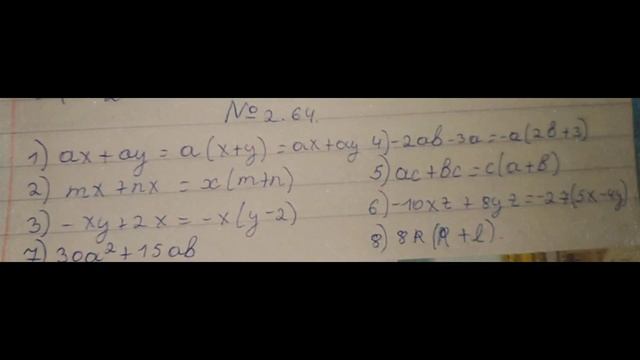 № 2.64.
1) ax + ay = a(x+y) = ax + ay
2) mx + nx = x(m+n)
3) -xy + 2x = -x(y-2)
7) 30a² + 15ab
4) -2ab - 3a = -a(2b+3)
5) ac + bc = c(a+b)
6) -10xz + 8yz = -2z(5x-4y)
8) 8k(k+l).